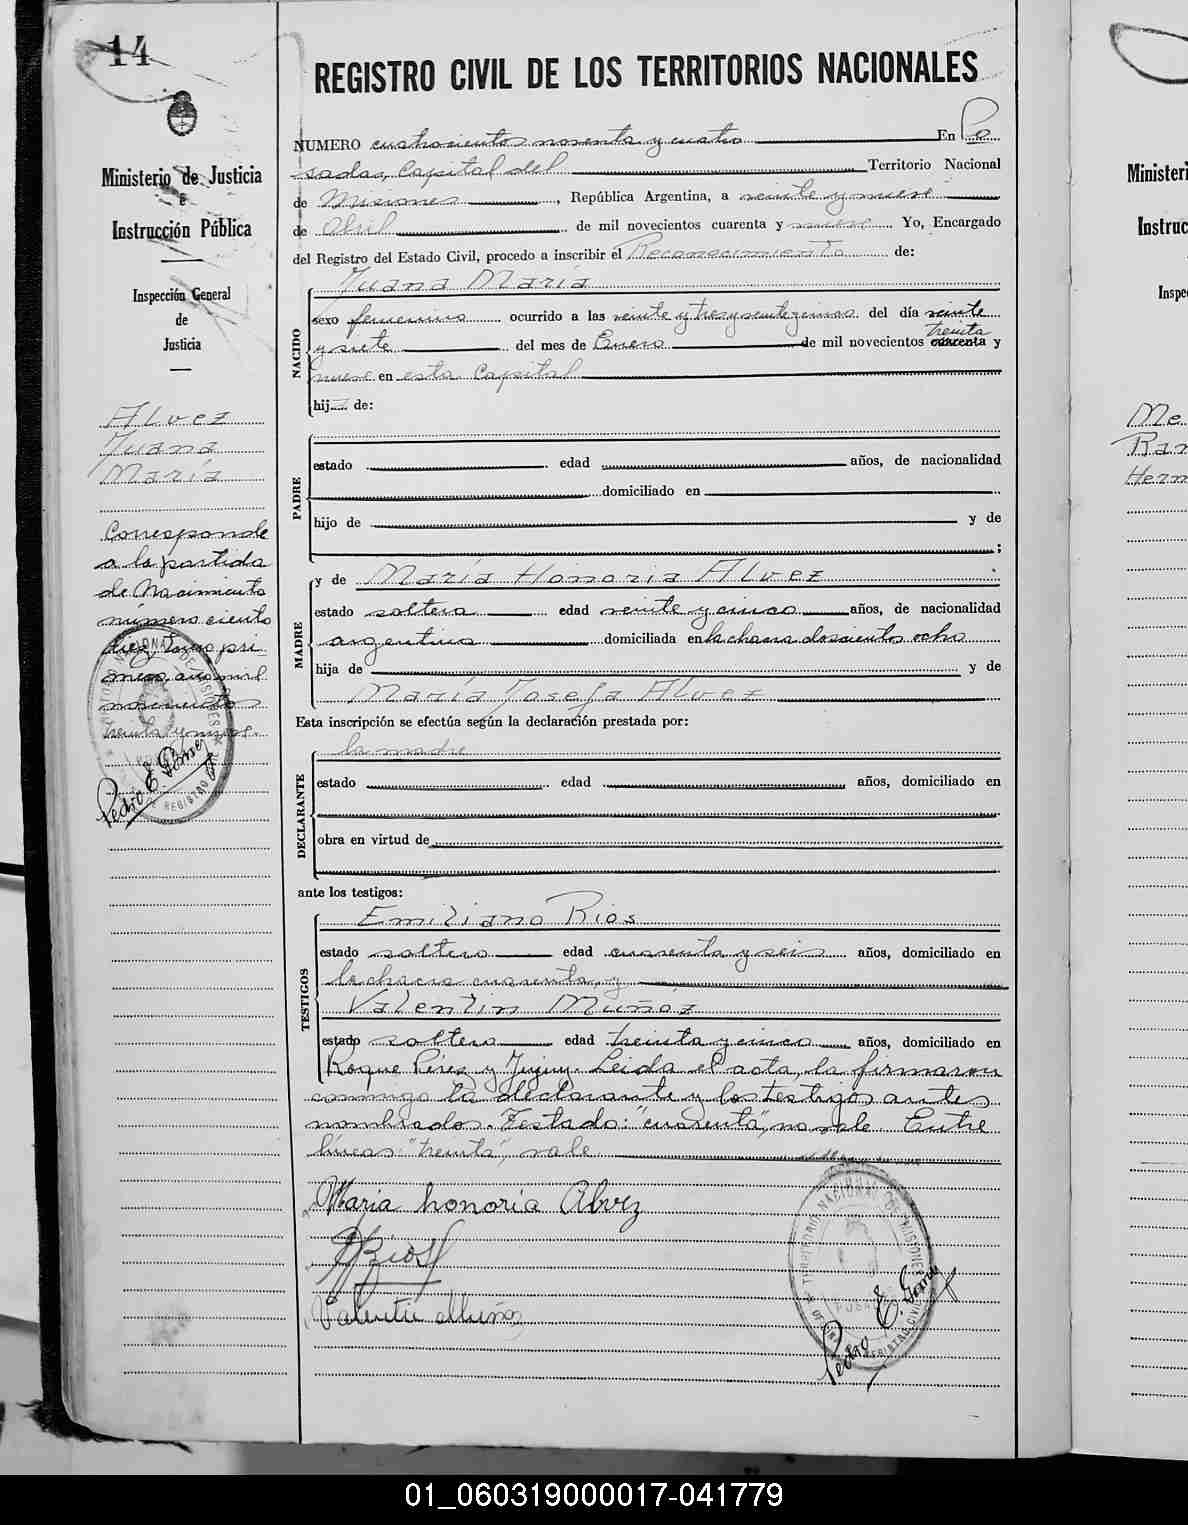 14
REGISTRO CIVIL DE LOS TERRITORIOS NACIONALES
Ministerio de Justicia
e
Instrucción Pública
Inspección General
de
Justicia
Alvez
Juana
María
Corresponde
a la partida
de Nacimiento
número ciento
diez, tomo pri-
mero, año mil
novecientos
treinta y nueve.-
Pedro E. Gómez
NUMERO cuatrocientos noventa y cuatro En Po
sadas, Capital del Territorio Nacional
de Misiones, República Argentina, a veinte y nueve
de Abril de mil novecientos cuarenta y nueve Yo, Encargado
del Registro del Estado Civil, procedo a inscribir el Reconocimiento de:
NACIDO
Juana María
sexo femenino ocurrido a las veinte y tres y veinte y cinco del día veinte
treinta
y siete del mes de Enero de mil novecientos cuarenta y
nueve en esta Capital
hija de:
PADRE
estado edad años, de nacionalidad
domiciliado en
hijo de y de
;
MADRE
y de María Honoria Alvez
estado soltera edad veinte y cinco años, de nacionalidad
argentina domiciliada en la chacra doscientos ocho
hija de y de
María Josefa Alvez
Esta inscripción se efectúa según la declaración prestada por:
DECLARANTE
la madre
estado edad años, domiciliado en
obra en virtud de
ante los testigos:
TESTIGOS
Emiliano Rios
estado soltero edad cuarenta y seis años, domiciliado en
la chacra cuarenta, y
Valentin Muñoz
estado soltero edad treinta y cinco años, domiciliado en
Roque Pérez y Jujuy. Leida el acta, la firmaron
conmigo la declarante y los testigos antes
nombrados. Testado: "cuarenta", no vale. Entre
líneas: "treinta", vale.
Maria honoria Alvez
E Rios
Valentin Muñoz
Pedro E. Gómez
Ministeri
Instruc
Inspe
Me
Ran
Hern
01_060319000017-041779